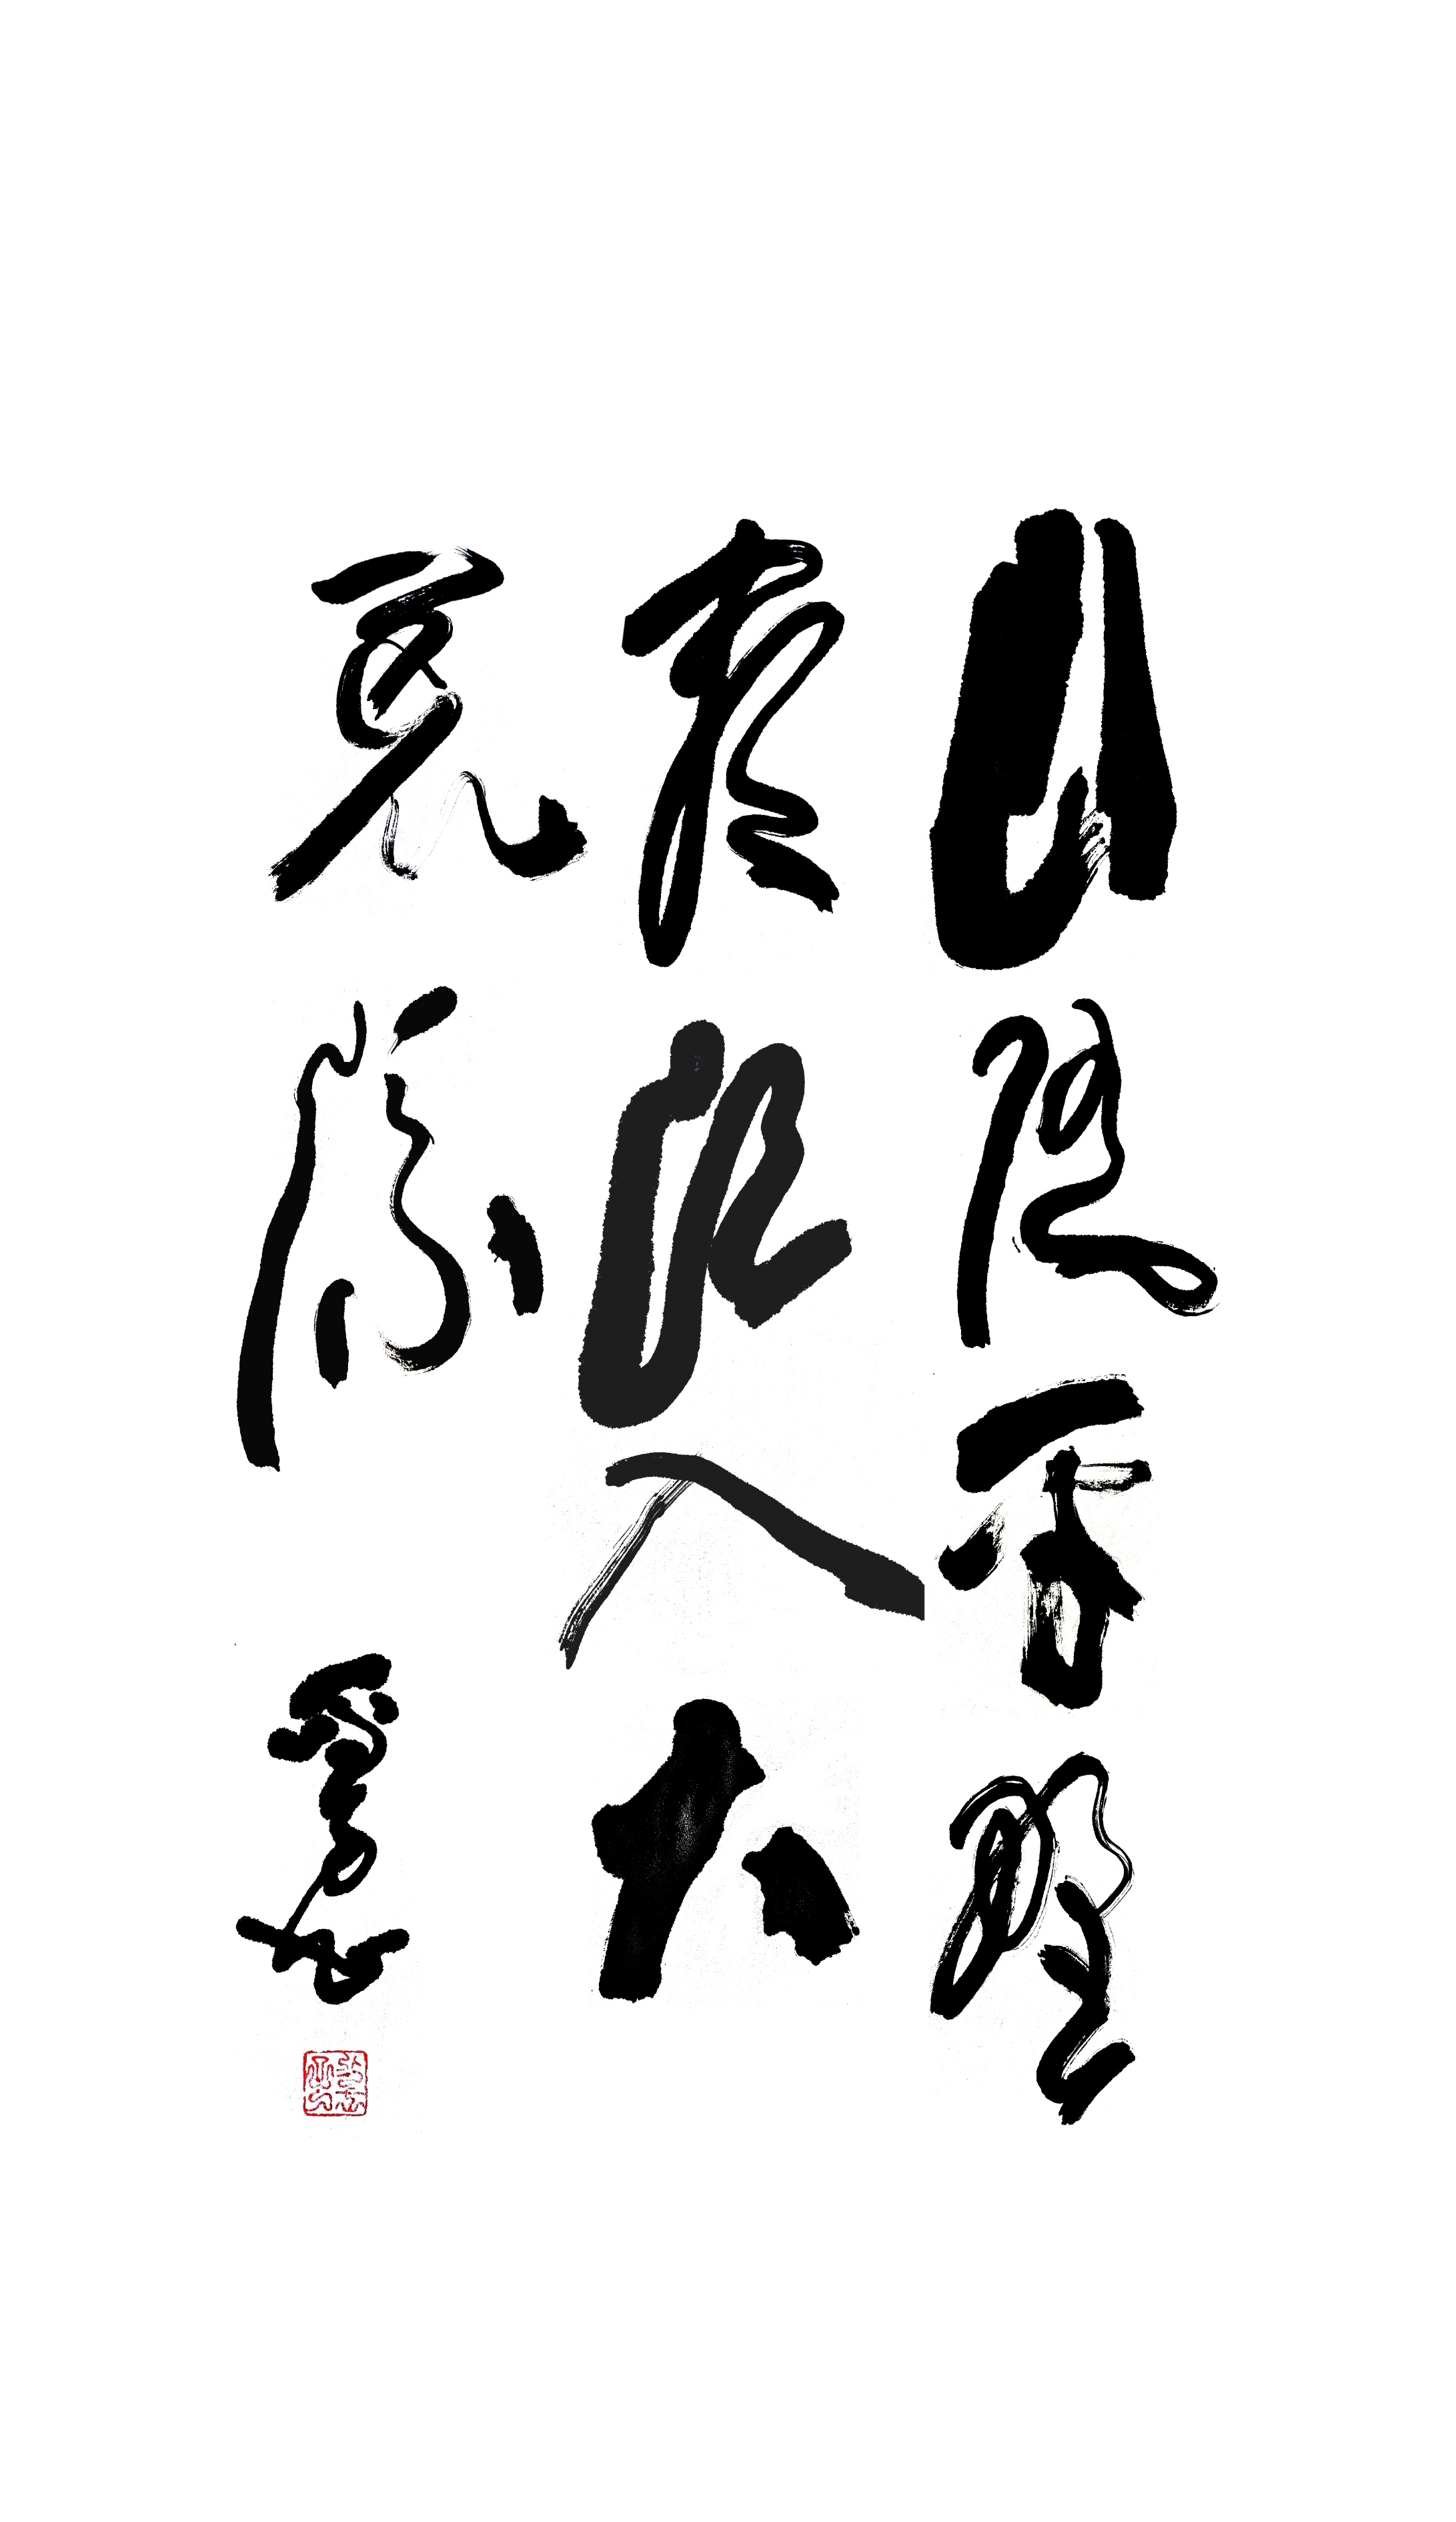 山随平野
尽江入大
荒流